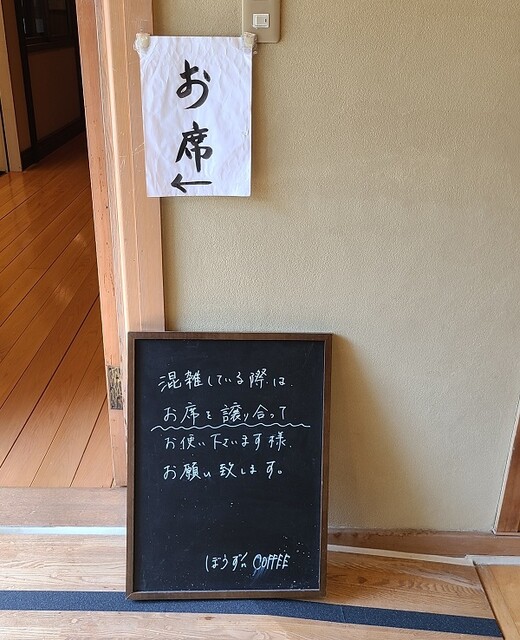 お席
←
混雑している際は、
お席を譲り合って
お使い下さいます様、
お願い致します。
ぼうず'n COFFEE